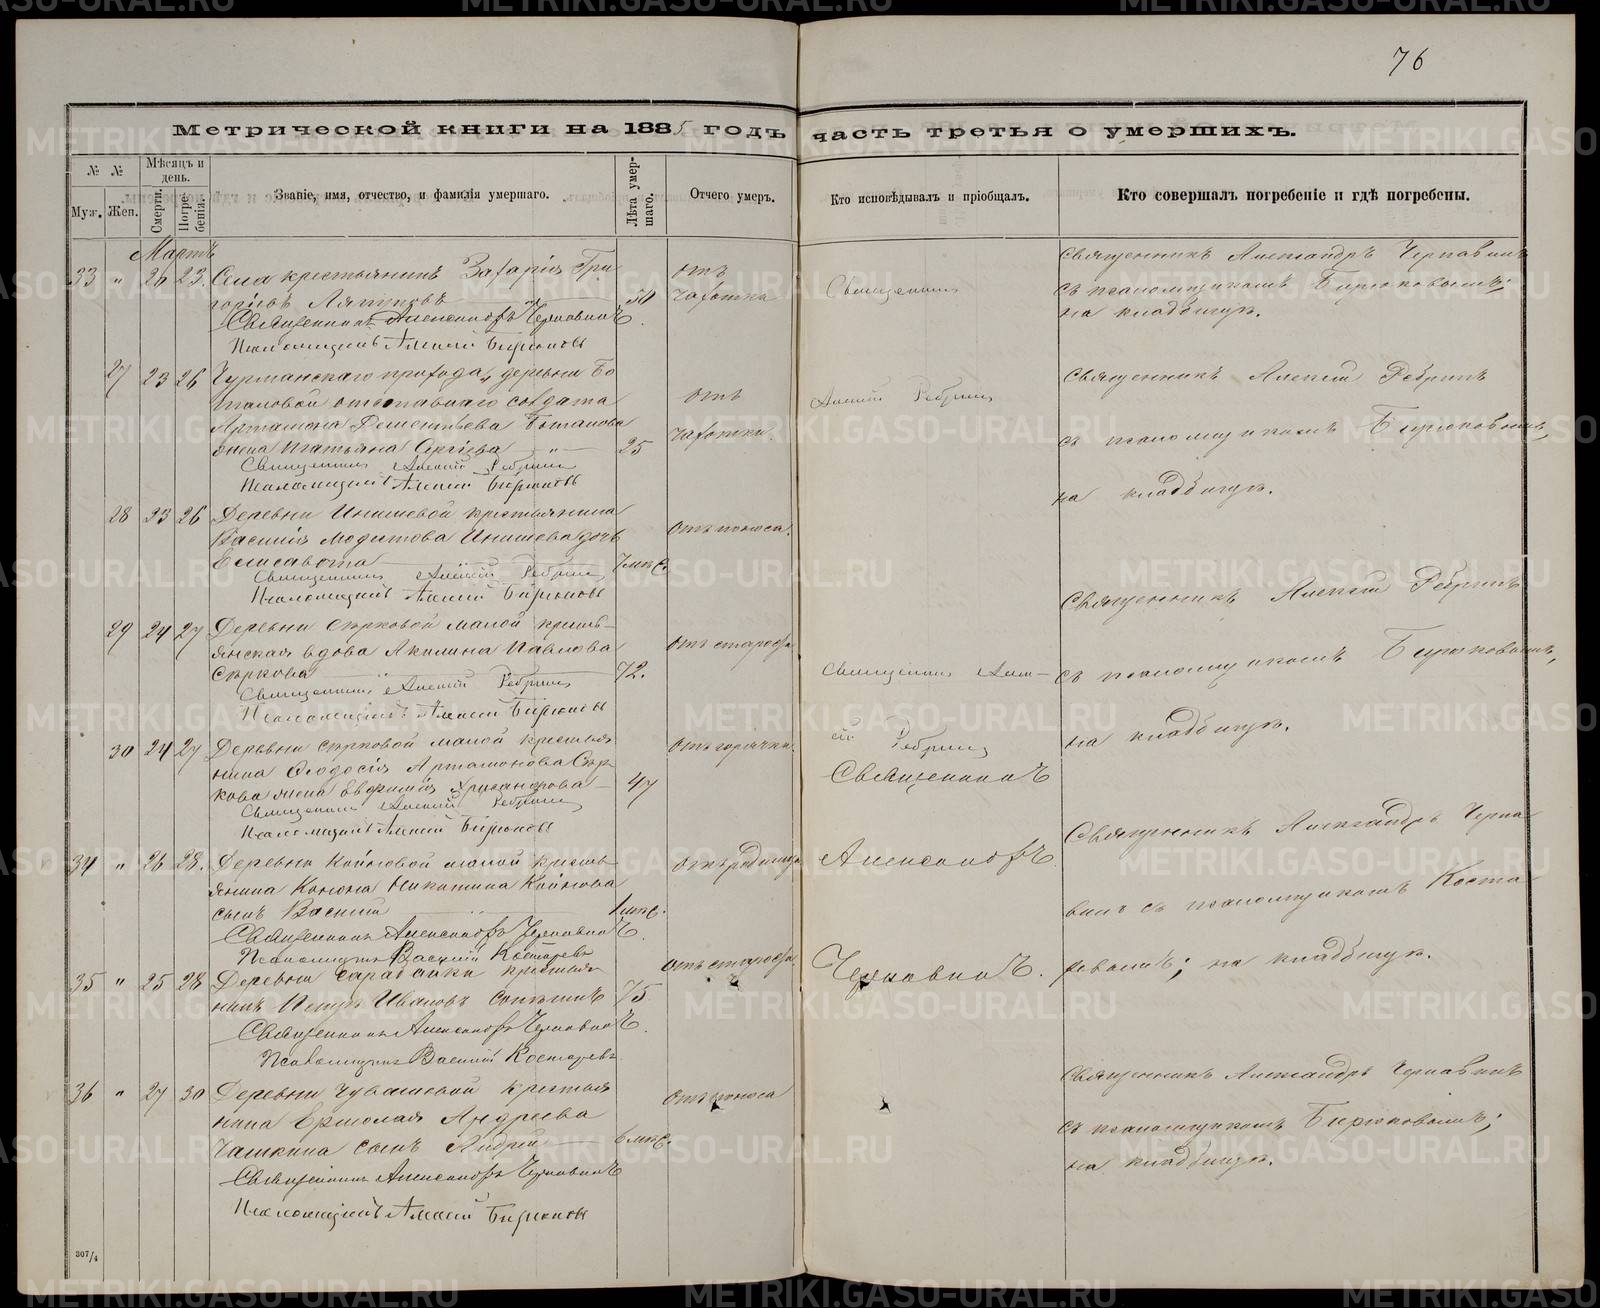 76
Метрической книги на 1885 годъ часть третья о умершихъ.
№ №
Мѣсяцъ и день.
Муж. Жен.
Смерти.
Погребенія.
Званіе, имя, отчество, и фамилія умершаго.
Лѣта умершаго.
Отчего умеръ.
Кто исповѣдывалъ и пріобщалъ.
Кто совершалъ погребеніе и гдѣ погребены.
Мартъ
33 " 20 23. Села крестьянинъ Захарія Гри
горіевъ Ляпуновъ 50
отъ
чахотки
Священникъ
Священникъ Александръ Чернавинъ
съ псаломщикомъ Бирюковымъ;
на кладбищѣ.
Священникъ Александръ Чернавинъ.
Псаломщикъ Алексій Бирюковъ
27 23 26 прихода, деревни Бо
таловой солдата
Артамона Боталова
жена Татьяна Сергіева 25
отъ
чахотки.
Алексій Ребринъ
Священникъ Алексій Ребринъ
съ псаломщикомъ Бирюковымъ,
на кладбищѣ.
Священникъ Алексій Ребринъ
Псаломщикъ Алексій Бирюковъ
28 23 26 Деревни крестьянина
Василія Модестова дочь
Елисавета 7 мѣс.
отъ поноса.
Священникъ Алексій Ребринъ
Священникъ Алексій Ребринъ
Псаломщикъ Алексій Бирюковъ
29 24 27 Деревни Сѣрковой малой кресть-
янская вдова Акилина Павлова
Сѣркова 72.
отъ старости
Священникъ Алек-
съ псаломщикомъ Бирюковымъ,
Священникъ Алексій Ребринъ
Псаломщикъ Алексій Бирюковъ
30 24 27 Деревни Сѣрковой малой крестья
нина Ѳеодосія Артамонова Сѣр
кова жена 47
отъ горячки.
сій Ребринъ
на кладбищѣ.
Священникъ
Священникъ Алексій Ребринъ
Псаломщикъ Алексій Бирюковъ
34 " 26 28. Деревни малой кресть
янина Конона Никитина
сынъ Василій 1 мѣс.
отъ родимца
Александръ
Священникъ Александръ Черна
винъ съ псаломщикомъ Коста
Священникъ Александръ Чернавинъ.
Псаломщикъ Василій Костаревъ
35 " 25 28 Деревни крестья
нинъ Петръ Ивановъ 75
отъ старости.
Чернавинъ.
ревымъ; на кладбищѣ.
Священникъ Александръ Чернавинъ.
Псаломщикъ Василій Костаревъ
36 " 27 30 Деревни Чувашевой крестья
нина Ермолая Андреева
Чашкина сынъ Андрей 6 мѣс.
отъ поноса
Священникъ Александръ Чернавинъ
съ псаломщикомъ Бирюковымъ;
на кладбищѣ.
Священникъ Александръ Чернавинъ
Псаломщикъ Алексій Бирюковъ
307/4
METRIKI.GASO-URAL.RU